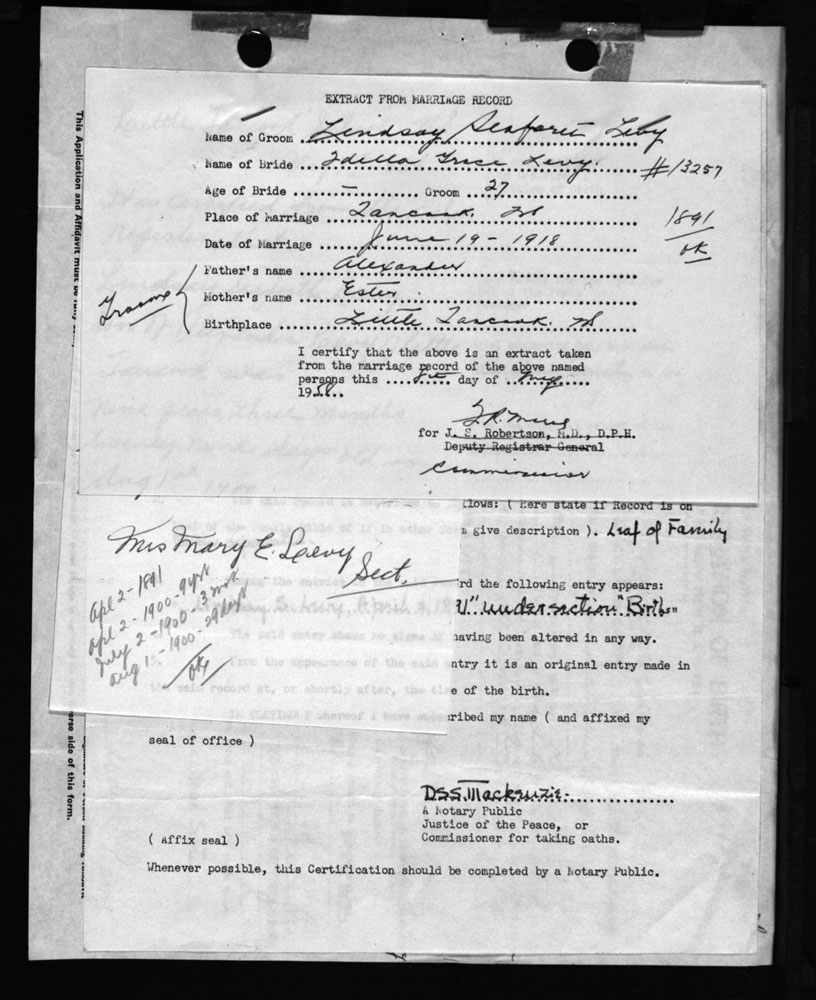 EXTRACT FROM MARRIAGE RECORD
Name of Groom Lindsay Seaforth Levy
Name of Bride Idella Grace Levy. #13257
Age of Bride – Groom 27
Place of Marriage Tancook. NS 1891
Date of Marriage June 19 - 1918 ok
Father's name Alexander
Groom Mother's name Ester
Birthplace Little Tancook. NS
I certify that the above is an extract taken
from the marriage record of the above named
persons this 8th day of May
1958
for J. S. Robertson, M.D., D.P.H.
Deputy Registrar General
Commissioner
This Application and Affidavit must be
llows: ( here state if Record is on
give description ). Leaf of Family
Mrs Mary E. Levy
Sect.
'rd the following entry appears:
"under section "Births"
Apl 2 - 1891
Apl 2 - 1900 - 9 yrs
July 2 - 1900 - 3 mos
Aug 1 - 1900 - 29 days
ok
having been altered in any way.
ntry it is an original entry made in
the said record at, or shortly after, the time of the birth.
ribed my name ( and affixed my
seal of office )
erse side of this form.
D.S.S. Mackenzie.
A Notary Public
Justice of the Peace, or
( Affix seal ) Commissioner for taking oaths.
Whenever possible, this Certification should be completed by a Notary Public.